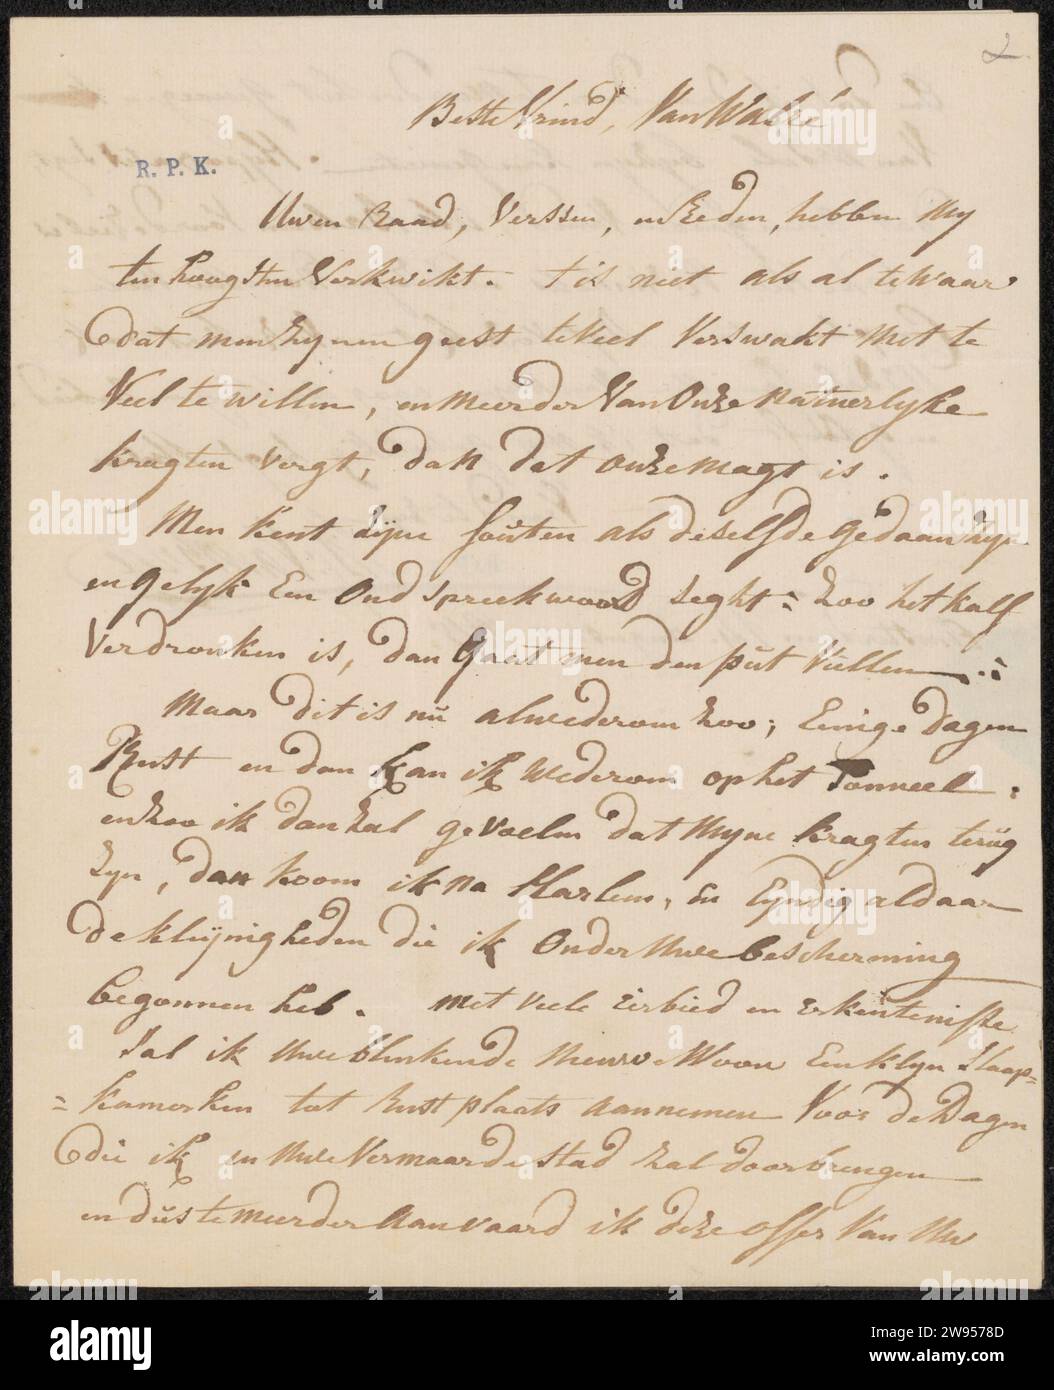 2
Beste Vrind, Van Walré
R. P. K.
Uwen Raad, Verssen, en Reden, hebben my
ten hoogsten Verkwikt. t is niet als al te Waar
dat men zynen geest te Veel Verswakt met te
Veel te willen, en meerder Van Onze natuerlyke
kragten vergt, dan dat onze magt is.
Men kent zyne fouten als deselfde gedaan zyn
en gelyk Een Oud spreekwoord seght: zoo het kalf
Verdronken is, dan gaat men den put Vullen
Maar dit is nu alwederom zoo; Einige dagen
Rust en dan kan ik wederom op het Tonneel:
en zoo ik dan zal gevoelen dat Myne kragten terug
zyn, dan koom ik na Harlem, en Eyndig aldaar
de kleynigheden die ik Onder Uwe bescherming
begonnen heb. met veele Eerbied en Erkentenisse
Sal ik Uwe blinkende nieuwe Woon Een klyn Slaap=
=kamerken tot Rustplaats aannemen Voor de Dagen
die ik in Uwe Vermaarde Stad zal doorbrengen
en dus te meerder Aanvaard ik deze offer Van Uw
alamy
2W9578D